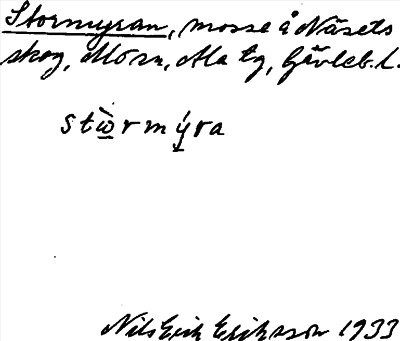 Stormyran, mosse å Näsets
skog, Mo sn, Ala tg, Gävleb. l.
stὼrmýra
Nils Erik Eriksson 1933